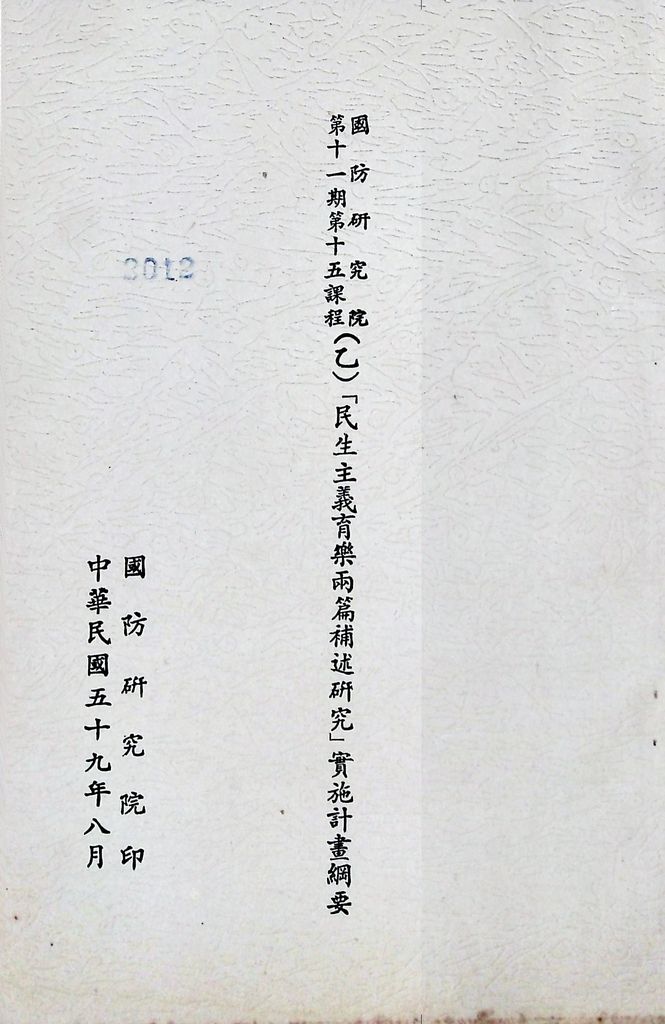 國防研究院
第十一期第十五課程（乙）「民生主義育樂兩篇補述研究」實施計畫綱要
國防研究院印
中華民國五十九年八月
2012